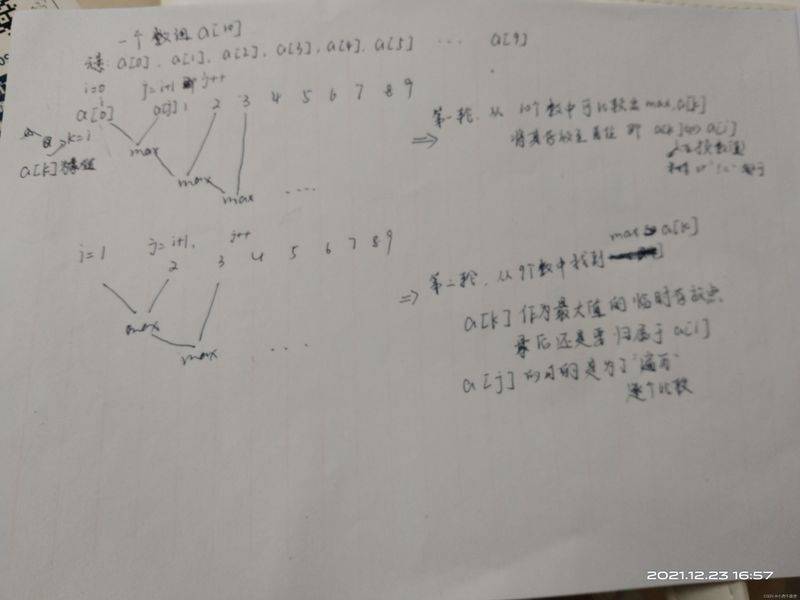 一个数组 a[10]
a[0], a[1], a[2], a[3], a[4], a[5] ... a[9]
i=0 j=i+1 j++
i
a[0] a[j] 1 2 3 4 5 6 7 8 9
k=i
a[k]
max
max
max ....
⇒ 第一轮,从10个数中可比较出 max,a[k]
将其存放至首位 即 a[k]⇔a[i]
i=1 j=i+1, j++
2 3 4 5 6 7 8 9
max
max ....
max a[k]
⇒ 第二轮,从9个数中找到
a[k]作为最大值的临时存放点
最后还是要归属于a[i]
a[j]的目的是为了“遍历”
逐个比较
2021.12.23 16:57